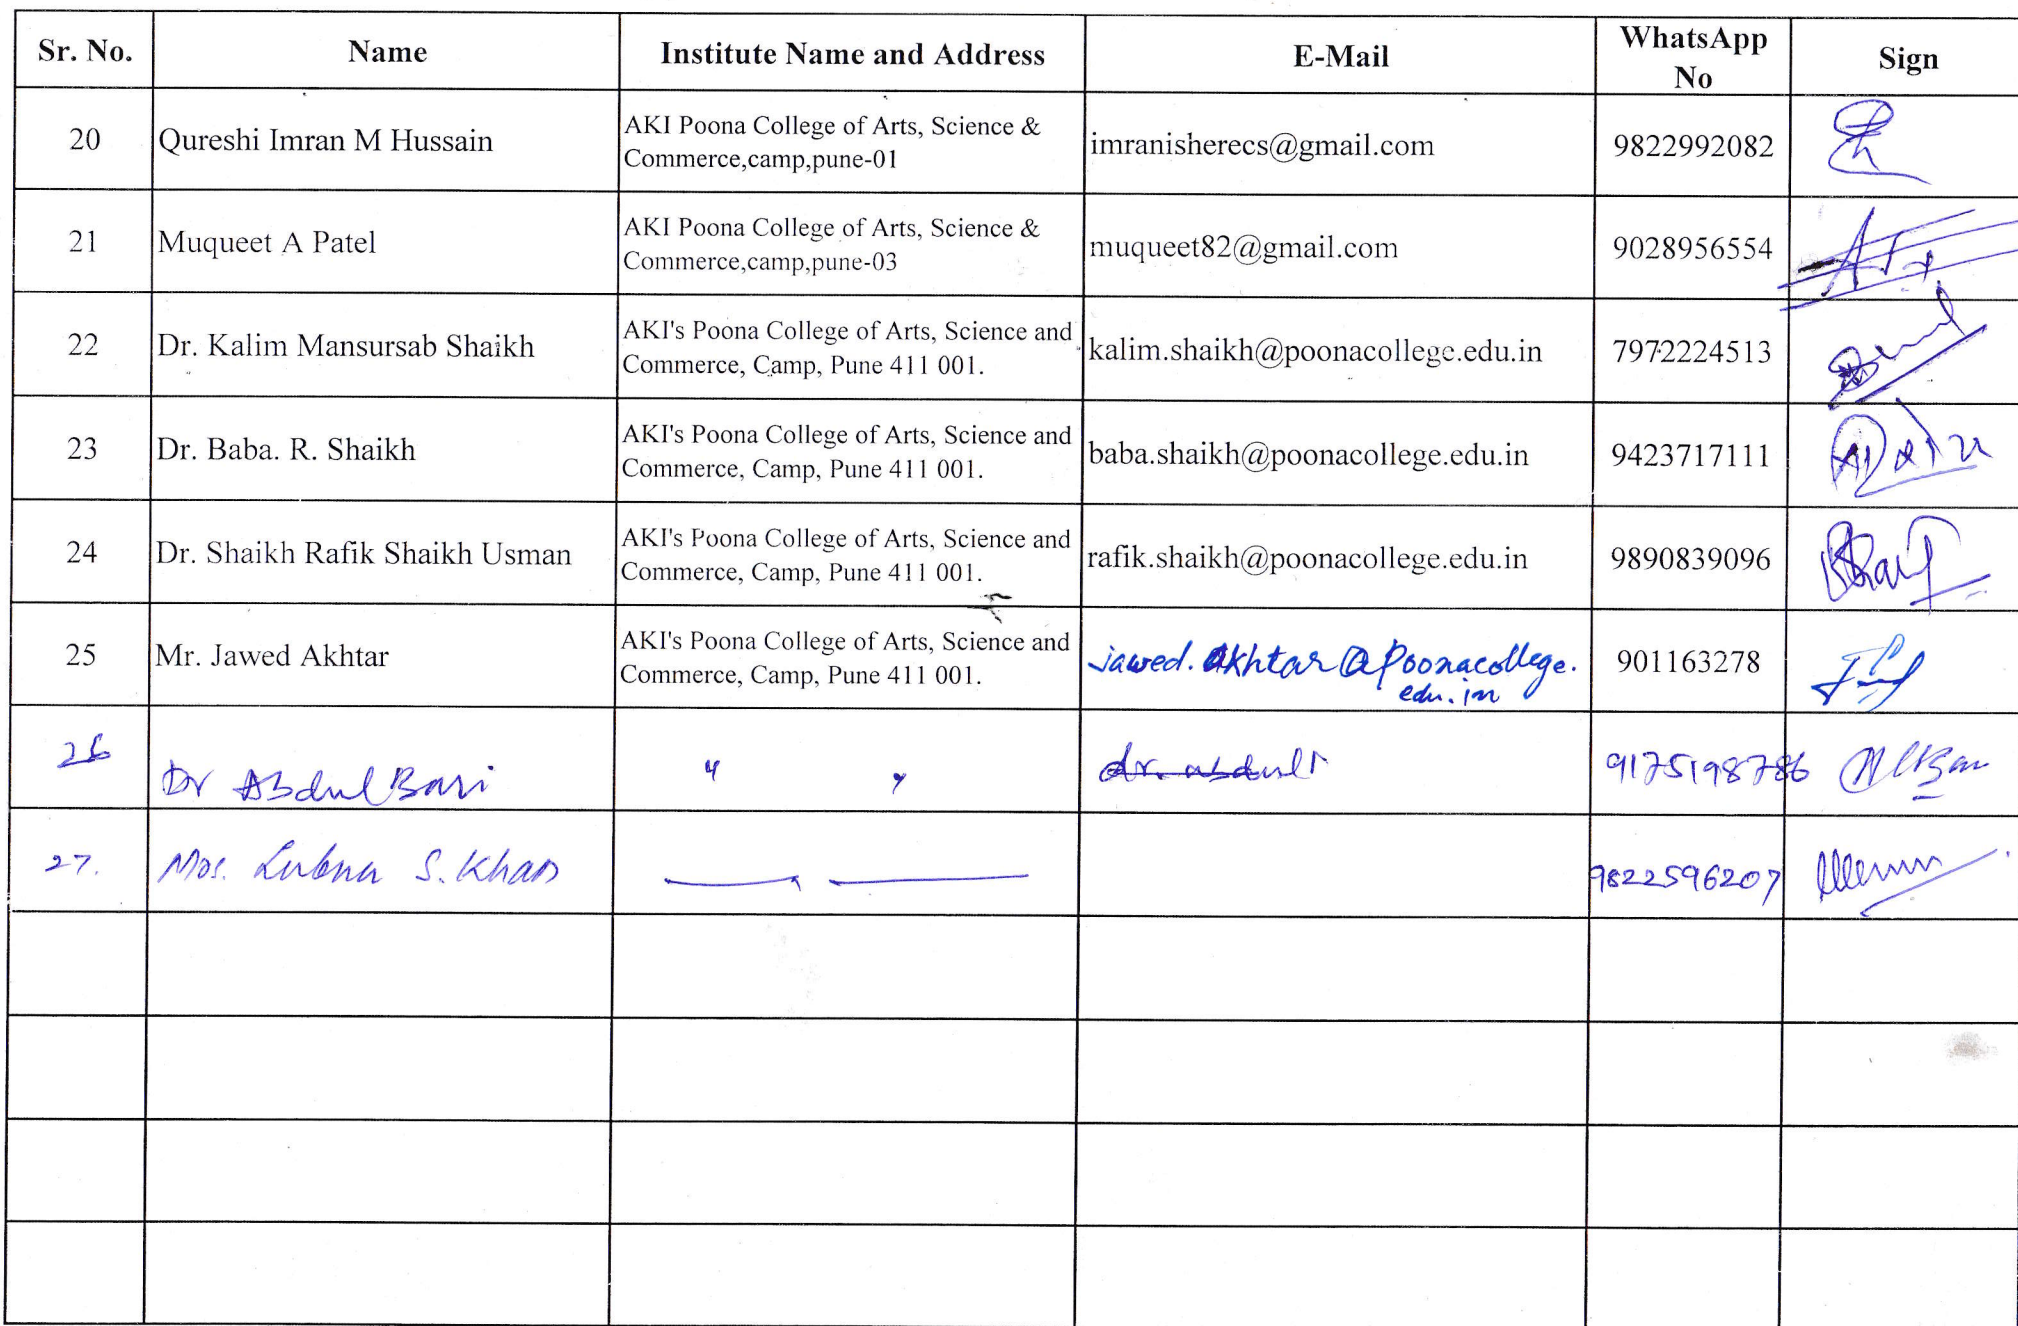 Sr. No. Name Institute Name and Address E-Mail WhatsApp No Sign
20 Qureshi Imran M Hussain AKI Poona College of Arts, Science & Commerce,camp,pune-01 imranisherecs@gmail.com 9822992082
21 Muqueet A Patel AKI Poona College of Arts, Science & Commerce,camp,pune-03 muqueet82@gmail.com 9028956554
22 Dr. Kalim Mansursab Shaikh AKI's Poona College of Arts, Science and Commerce, Camp, Pune 411 001. kalim.shaikh@poonacollege.edu.in 7972224513
23 Dr. Baba. R. Shaikh AKI's Poona College of Arts, Science and Commerce, Camp, Pune 411 001. baba.shaikh@poonacollege.edu.in 9423717111
24 Dr. Shaikh Rafik Shaikh Usman AKI's Poona College of Arts, Science and Commerce, Camp, Pune 411 001. rafik.shaikh@poonacollege.edu.in 9890839096
25 Mr. Jawed Akhtar AKI's Poona College of Arts, Science and Commerce, Camp, Pune 411 001. jawed.akhtar@poonacollege.edu.in 901163278
26 Dr Abdul Bari " " 9175198786
27. Mrs. Lubna S. Khan 9822596207